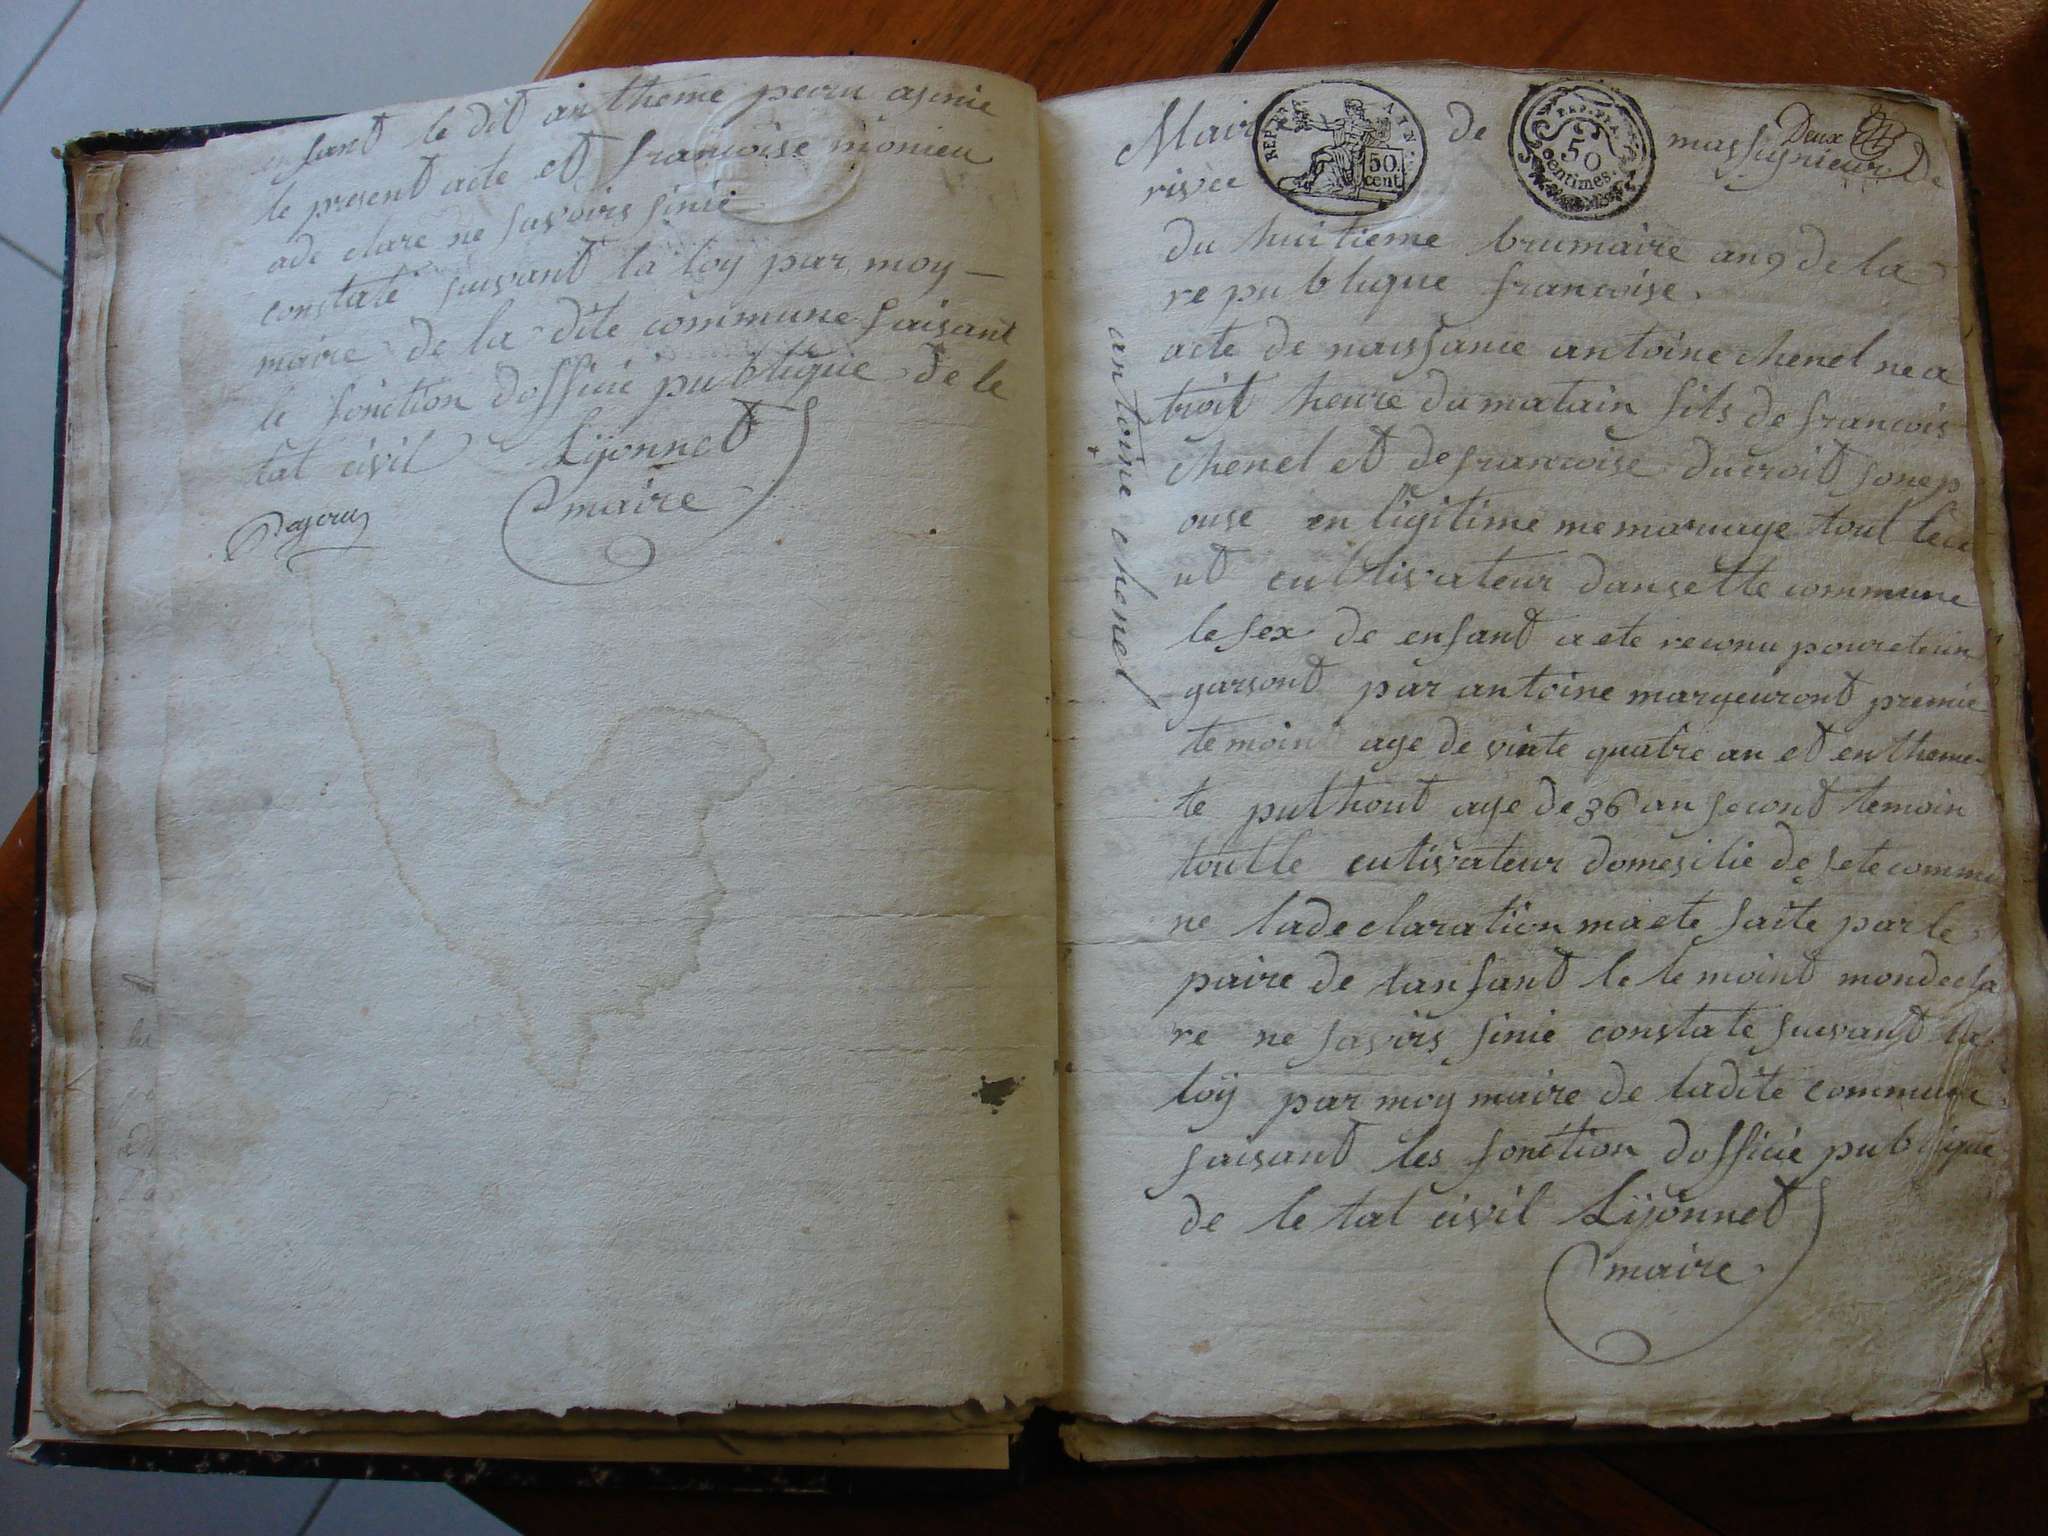 enfant le dit antheme peoru asinie
le present acte et francoise monieu
ade clare ne savoirs sinie
constaté suivant la loy par moy —
maire de la dite commune faisant
le fonction dofficie publique de le
tat civil Lijonnet
maire
Mairie de massignieux de
Deux
rives
REP. FRA. 50 cent
REP. FRA. 50 centimes.
du huitieme brumaire an 9 de la
re publique francoise.
acte de naissance antoine chenel ne a
troit heure du matain fils de francois
chenel et de francoise ducroit son ep
ouse en ligitime me mariage tout le
ut cultivateur dans ette commune
le sex de enfant a ete reconu pour etre un
garsont par antoine margeuront premie
temoint age de vinte quatre an et en theme
te puthout age de 36 an second temoin
tout le cutivateur domesilie de sete commu
ne la declaration ma ete faite par le
paire de lanfant le temoint mon decla
re ne savirs sinie constate suivant la
loÿ par moy maire de ladite commune
faisant les fonction dofficié publique
de le tat civil Lijonnet
maire
antoine chenel